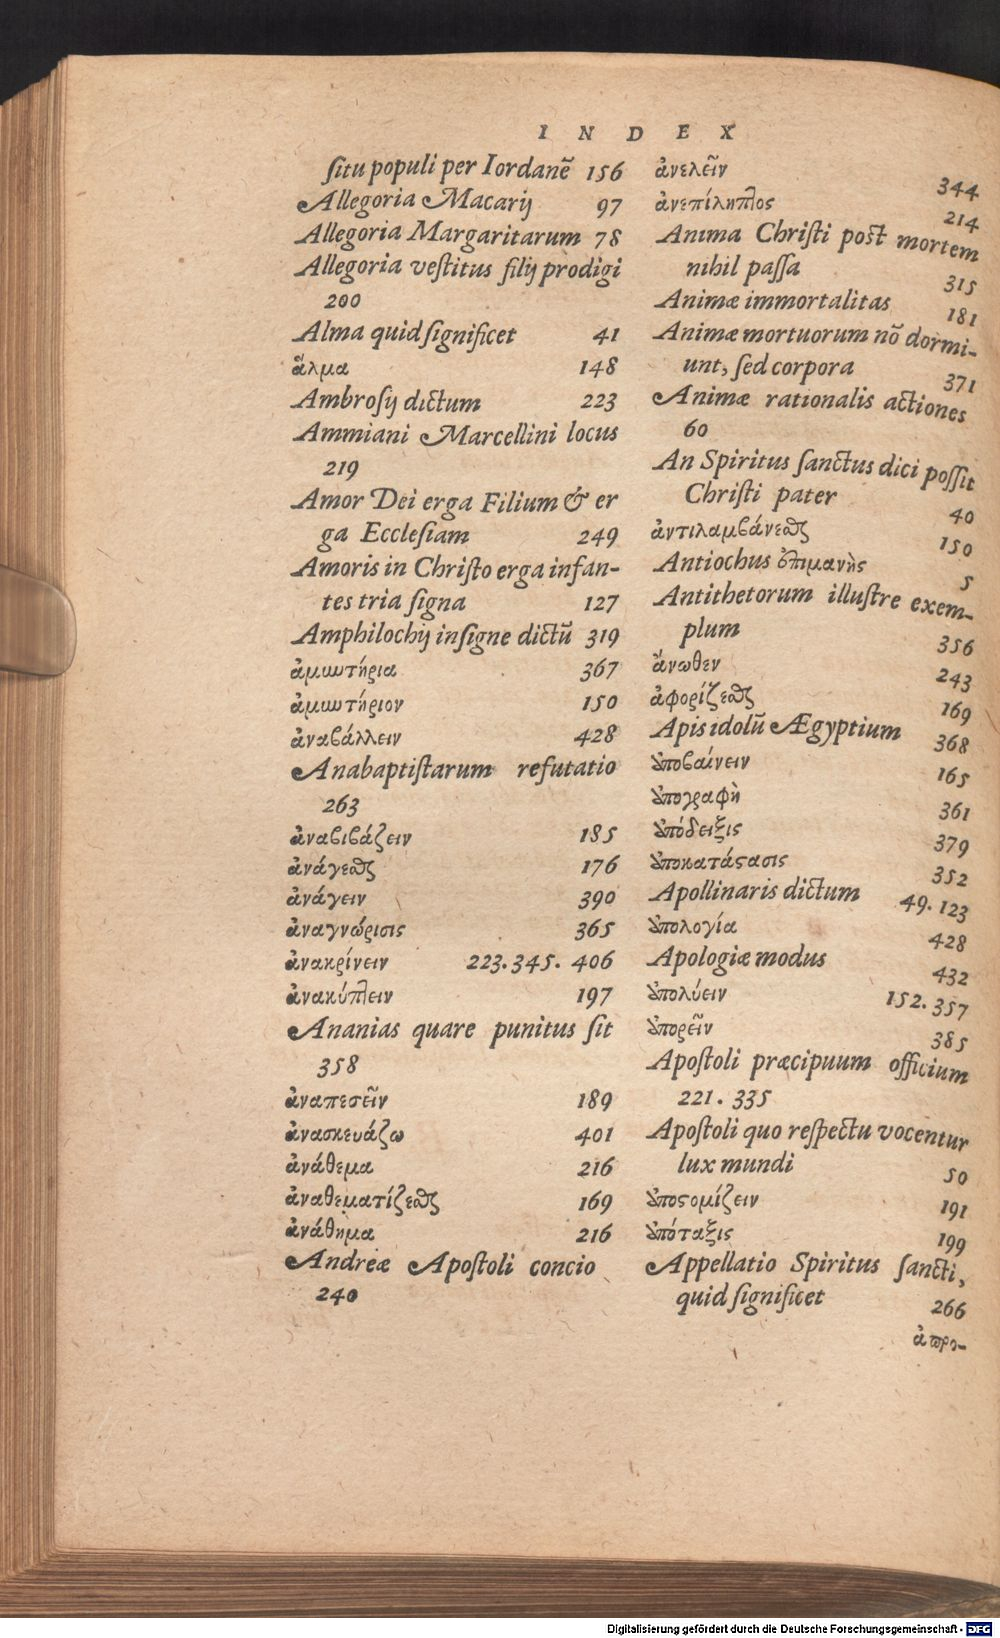 INDEX
situ populi per Iordanẽ 156
Allegoria Macarij 97
Allegoria Margaritarum 78
Allegoria vestitus filij prodigi
200
Alma quid significet 41
ἅλμα 148
Ambrosij dictum 223
Ammiani Marcellini locus
219
Amor Dei erga Filium & er
ga Ecclesiam 249
Amoris in Christo erga infan-
tes tria signa 127
Amphilochij insigne dictũ 319
ἀμυντήρια 367
ἀμυντήριον 150
ἀναβάλλειν 428
Anabaptistarum refutatio
263
ἀναβιβάζειν 185
ἀνάγεσθαι 176
ἀνάγειν 390
ἀναγνώρισις 365
ἀνακρίνειν 223.345. 406
ἀνακύπτειν 197
Ananias quare punitus sit
358
ἀναπεσεῖν 189
ἀνασκευάζω 401
ἀνάθεμα 216
ἀναθεματίζεσθαι 169
ἀνάθημα 216
Andreæ Apostoli concio
240
ἀνελεῖν 344
ἀνεπίληπτος 214
Anima Christi post mortem
nihil passa 315
Animæ immortalitas 181
Animæ mortuorum nõ dormi-
unt, sed corpora 371
Animæ rationalis actiones
60
An Spiritus sanctus dici possit
Christi pater 40
ἀντιλαμβάνεσθαι 150
Antiochus ἐπιμανὴς 5
Antithetorum illustre exem-
plum 356
ἄνωθεν 243
ἀφορίζεσθαι 169
Apis idolũ Ægyptium 368
ἀποβαίνειν 165
ἀπογραφὴ 361
ἀπόδειξις 379
ἀποκατάστασις 352
Apollinaris dictum 49. 123
ἀπολογία 428
Apologiæ modus 432
ἀπολύειν 152. 357
ἀπορεῖν 385
Apostoli præcipuum officium
221. 335
Apostoli quo respectu vocentur
lux mundi 50
ἀποστομίζειν 191
ἀπόταξις 199
Appellatio Spiritus sancti,
quid significet 266
ἀπρο-
Digitalisierung gefördert durch die Deutsche Forschungsgemeinschaft - DFG